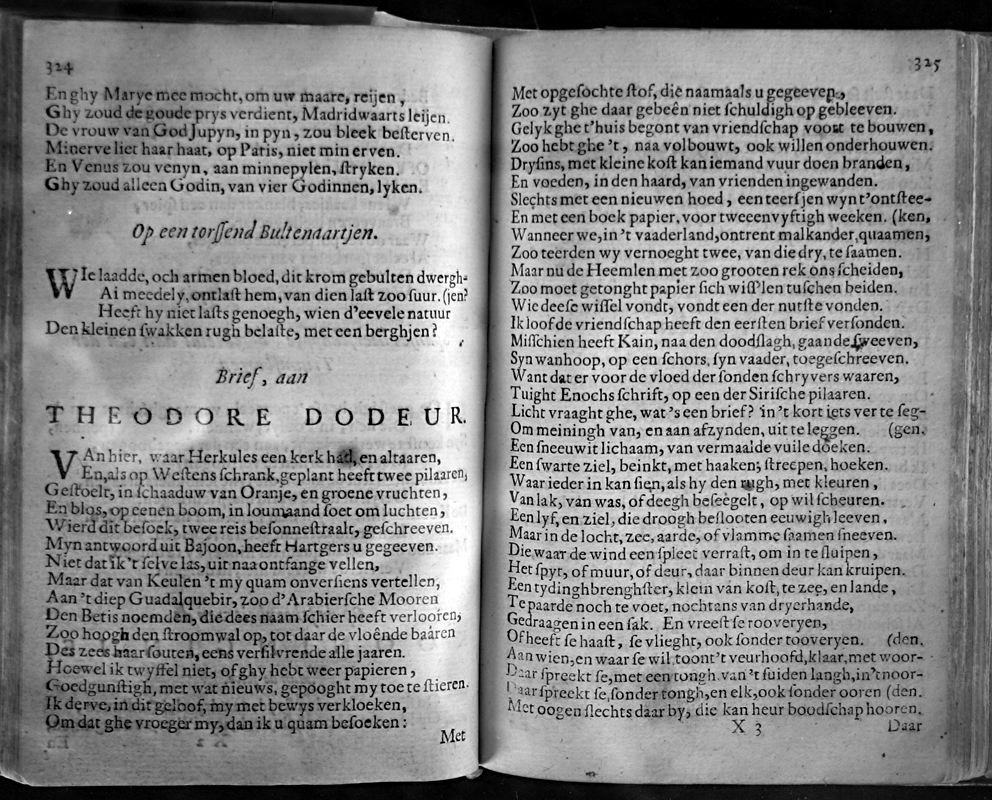 324
En ghy Marye mee mocht, om uw maare, reijen,
Ghy zoud de goude prys verdient, Madridwaarts leijen.
De vrouw van God Jupyn, in pyn, zou bleek beſterven.
Minerve liet haar haat, op Paris, niet min erven.
En Venus zou venyn, aan minnepylen, ſtryken.
Ghy zoud alleen Godin, van vier Godinnen, lyken.
Op een torſſend Bultenaartjen.
WIe laadde, och armen bloed, dit krom gebulten dwergh-
Ai meedely, ontlaſt hem, van dien laſt zoo ſuur. (jen?
Heeft hy niet laſts genoegh, wien d'eevele natuur
Den kleinen ſwakken rugh belaſte, met een berghjen?
Brief, aan
THEODORE DODEUR.
VAn hier, waar Herkules een kerk had, en altaaren,
En, als op Weſtens ſchrank, geplant heeft twee pilaaren,
Geſtoelt, in ſchaaduw van Oranje, en groene vruchten,
En blos, op eenen boom, in loumaand ſoet om luchten,
Wierd dit beſoek, twee reis beſonneſtraalt, geſchreeven.
Myn antwoord uit Bajoon, heeft Hartgers u gegeeven.
Niet dat ik 't ſelve las, uit naa ontfange vellen,
Maar dat van Keulen 't my quam onverſiens vertellen,
Aan 't diep Guadalquebir, zoo d'Arabierſche Mooren
Den Betis noemden, die dees naam ſchier heeft verlooren,
Zoo hoogh den ſtroom wal op, tot daar de vloênde baâren
Des zees haar ſouten, eens verſilvrende alle jaaren.
Hoewel ik twyffel niet, of ghy hebt weer papieren,
Goedgunſtigh, met wat nieuws, gepooght my toe te ſtieren.
Ik derve, in dit geloof, my met bewys verkloeken,
Om dat ghe vroeger my, dan ik u quam beſoeken:
Met
325
Met opgeſochte ſtof, die naamaals u gegeeven,
Zoo zyt ghe daar gebeên niet ſchuldigh op gebleeven.
Gelyk ghe t'huis begont van vriendſchap voort te bouwen,
Zoo hebt ghe 't, naa volbouwt, ook willen onderhouwen.
Dryſins, met kleine koſt kan iemand vuur doen branden,
En voeden, in den haard, van vrienden ingewanden.
Slechts met een nieuwen hoed, een teerſjen wyn t'ontſtee-
En met een boek papier, voor tweeenvyftigh weeken. (ken,
Wanneer we, in 't vaaderland, ontrent malkander, quaamen,
Zoo teerden wy vernoeght twee, van die dry, te ſaamen.
Maar nu de Heemlen met zoo grooten rek ons ſcheiden,
Zoo moet getonght papier ſich wiſſ'len tuſchen beiden.
Wie deeſe wiſſel vondt, vondt een der nutſte vonden.
Ik loof de vriendſchap heeft den eerſten brief verſonden.
Miſſchien heeft Kain, naa den doodſlagh, gaande ſweeven,
Syn wanhoop, op een ſchors, ſyn vaader, toegeſchreeven.
Want dat er voor de vloed der ſonden ſchryvers waaren,
Tuight Enochs ſchrift, op een der Siriſche pilaaren.
Licht vraaght ghe, wat 's een brief? in 't kort iets verte ſeg-
Om meiningh van, en aan afzynden, uit te leggen. (gen.
Een ſneeuwit lichaam, van vermaalde vuile doeken.
Een ſwarte ziel, beinkt, met haaken, ſtreepen, hoeken.
Waar ieder in kan ſien, als hy den rugh, met kleuren,
Van lak, van was, of deegh beſeegelt, op wil ſcheuren.
Een lyf, en ziel, die droogh beſlooten eeuwigh leeven,
Maar in de locht, zee, aarde, of vlamme ſaamen ſneeven.
Die waar de wind een ſpleet verraſt, om in te ſluipen,
Het ſpyt, of muur, of deur, daar binnen deur kan kruipen.
Een tydinghbrenghſter, klein van koſt, te zee, en lande,
Te paarde noch te voet, nochtans van dryerhande,
Gedraagen in een ſak. En vreeſt ſe rooveryen,
Of heeft ſe haaſt, ſe vlieght, ook ſonder tooveryen. (den.
Aan wien, en waar ſe wil, toont 't veurhoofd, klaar, met woor-
Daar ſpreekt ſe, met een tongh van 't ſuiden langh, in 't noor-
Daar ſpreekt ſe, ſonder tongh, en elk, ook ſonder ooren (den.
Met oogen ſlechts daar by, die kan heur boodſchap hooren.
X 3
Daar